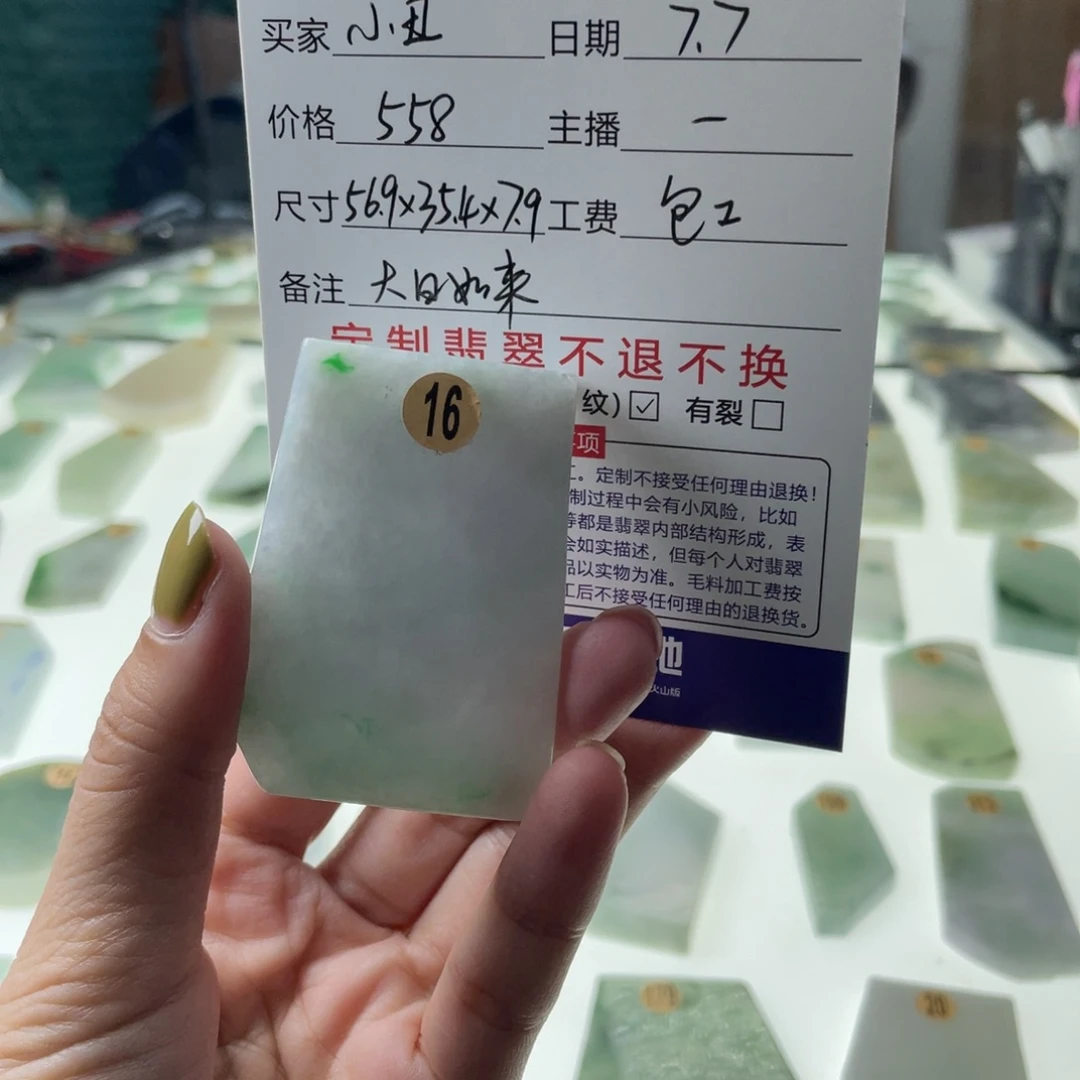 买家 小丑 日期 7.7
价格 558 主播 一
尺寸 56.9×35.4×7.9 工费 包工
备注 大日如来
定制翡翠不退不换
纹) ☑ 有裂 □
项
16
工。定制不接受任何理由退换!
制过程中会有小风险，比如
等都是翡翠内部结构形成，表
会如实描述，但每个人对翡翠
品以实物为准。毛料加工费按
工后不接受任何理由的退换货。
火山版
20